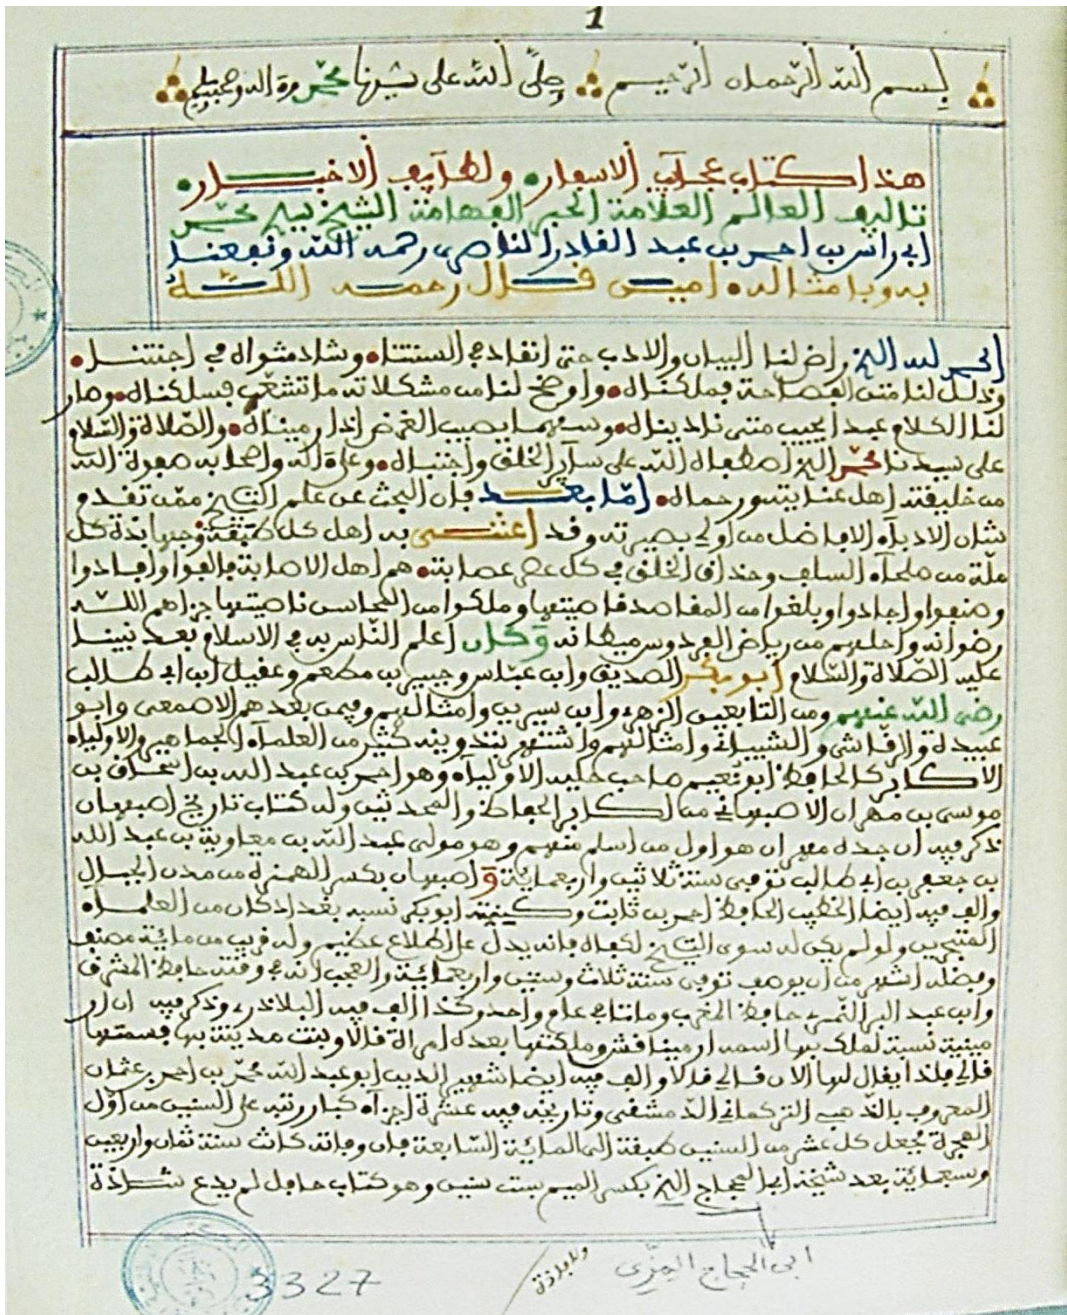 1
بسم الله الرحمان الرحيم صلى الله على سيدنا محمد وءاله وصحبه
هذا كتاب عجآيب الاسفار ولطآيف الاخبار
تاليف العالم العلامة الحبر الفهامة الشيخ سيدي محمد
ابي راس بن احمد بن عبد القادر الناصري رحمه الله ونفعنا
به وبامثاله امين قال رحمه الله
الحمد لله الذي راض لنا البيان والادب حتى انقاد في السنتنا وشاد مثواه في اجنتنا
وذلل لنا متن الفصاحة فملكناه واوضح لنا من مشكلاته ما تشعب فسلكناه وصار
لنا الكلام عبدا يجيب متى ناديناه وسهما يصيب الغرض اذا رميناه والصلاة والسلام
على سيدنا محمد الذي اصطفاه الله على سآير الخلق واجتباه وعلى ءاله واصحابه صفوة الله
من خليقته اهل عنايته ورحماه امّا بعد فان البحث عن علم التاريخ ممن تقدم
شان الادبآء الافاضل من اولي بصيرته وقد اعتنى به اهل كل طبقة وجهابذة كل
ملّة من صلحآء السلف وحذاق الخلف في كل عصر عصابة هم اهل الاصابة فالفوا وافادوا
وصنفوا واجادوا وبلغوا من المقاصد قاصيتها وملكوا من المحاسن ناصيتها جزاهم الله
رضوانه واحلهم من رياض الفردوس ميطانه وكان اعلم الناس به في الاسلام بعد نبينا
عليه الصلاة والسلام ابو بكر الصديق وابن عباس وجبير بن مطعم وعقيل ابن ابي طالب
رضي الله عنهم ومن التابعين الزهري وابن سيرين وامثالهم وفيمن بعدهم الاصمعي وابو
عبيدة والرقاشي والشيباني وامثالهم واشتهر بتدوينه كثير من العلمآء الجماهير والاوليآء
الاكابر كالحافظ ابو نعيم صاحب حلية الاوليآء وهو احمد بن عبد الله بن اسحاق بن
موسى بن مهران الاصبهاني من اكابر الحفاظ والمحدثين وله كتاب تاريخ اصبهان
ذكر فيه ان جده مهران هو اول من اسلم منهم وهو مولى عبد الله بن معاوية بن عبد الله
بن جعفر بن ابي طالب توفي سنة ثلاثين واربعماية واصبهان بكسر الهمزة من مدن الجبال
والف فيه ايضا الخطيب الحافظ احمد بن ثابت وكنيته ابو بكر نسبه بغداد كان من العلمآء
المتبحرين ولو لم يكن له سوى التاريخ لكفاه فانه يدل على اطلاع عظيم وله قريب من مائة مصنف
وفضله اشهر من ان يوصف توفي سنة ثلاث وستين واربعمائة والعجب انه في وقته حافظ المشرق
وابن عبد البر النمري حافظ المغرب وماتا في عام واحد وكذا الف فيه البلاذري وذكر فيه ان ار
مينية نسبة لملك بها اسمه ارميناقش وملكتها بعده امراة قالا وبنت مدينة بها فسمتها
قالي قلا ذا يقال لها الان قالي قلا والف فيه ايضا شهير الدين ابو عبد الله محمد بن احمد بن عثمان
المعروف بالذهبي التركماني الدمشقي وتاريخه فيه عشرة اجزآء كبار رتبه على السنين من اول
الهجرة يجعل كل عشر من السنين طبقة الى المائة السابعة فان وفاته كانت سنة ثمان واربعين
وسبعماية بعد شيخه ابا الحجاج الذي بكسر الميم بست سنين وهو كتاب حافل لم يدع شاذة
ابي الحجاج المِزّي
ولا فاذة
3327